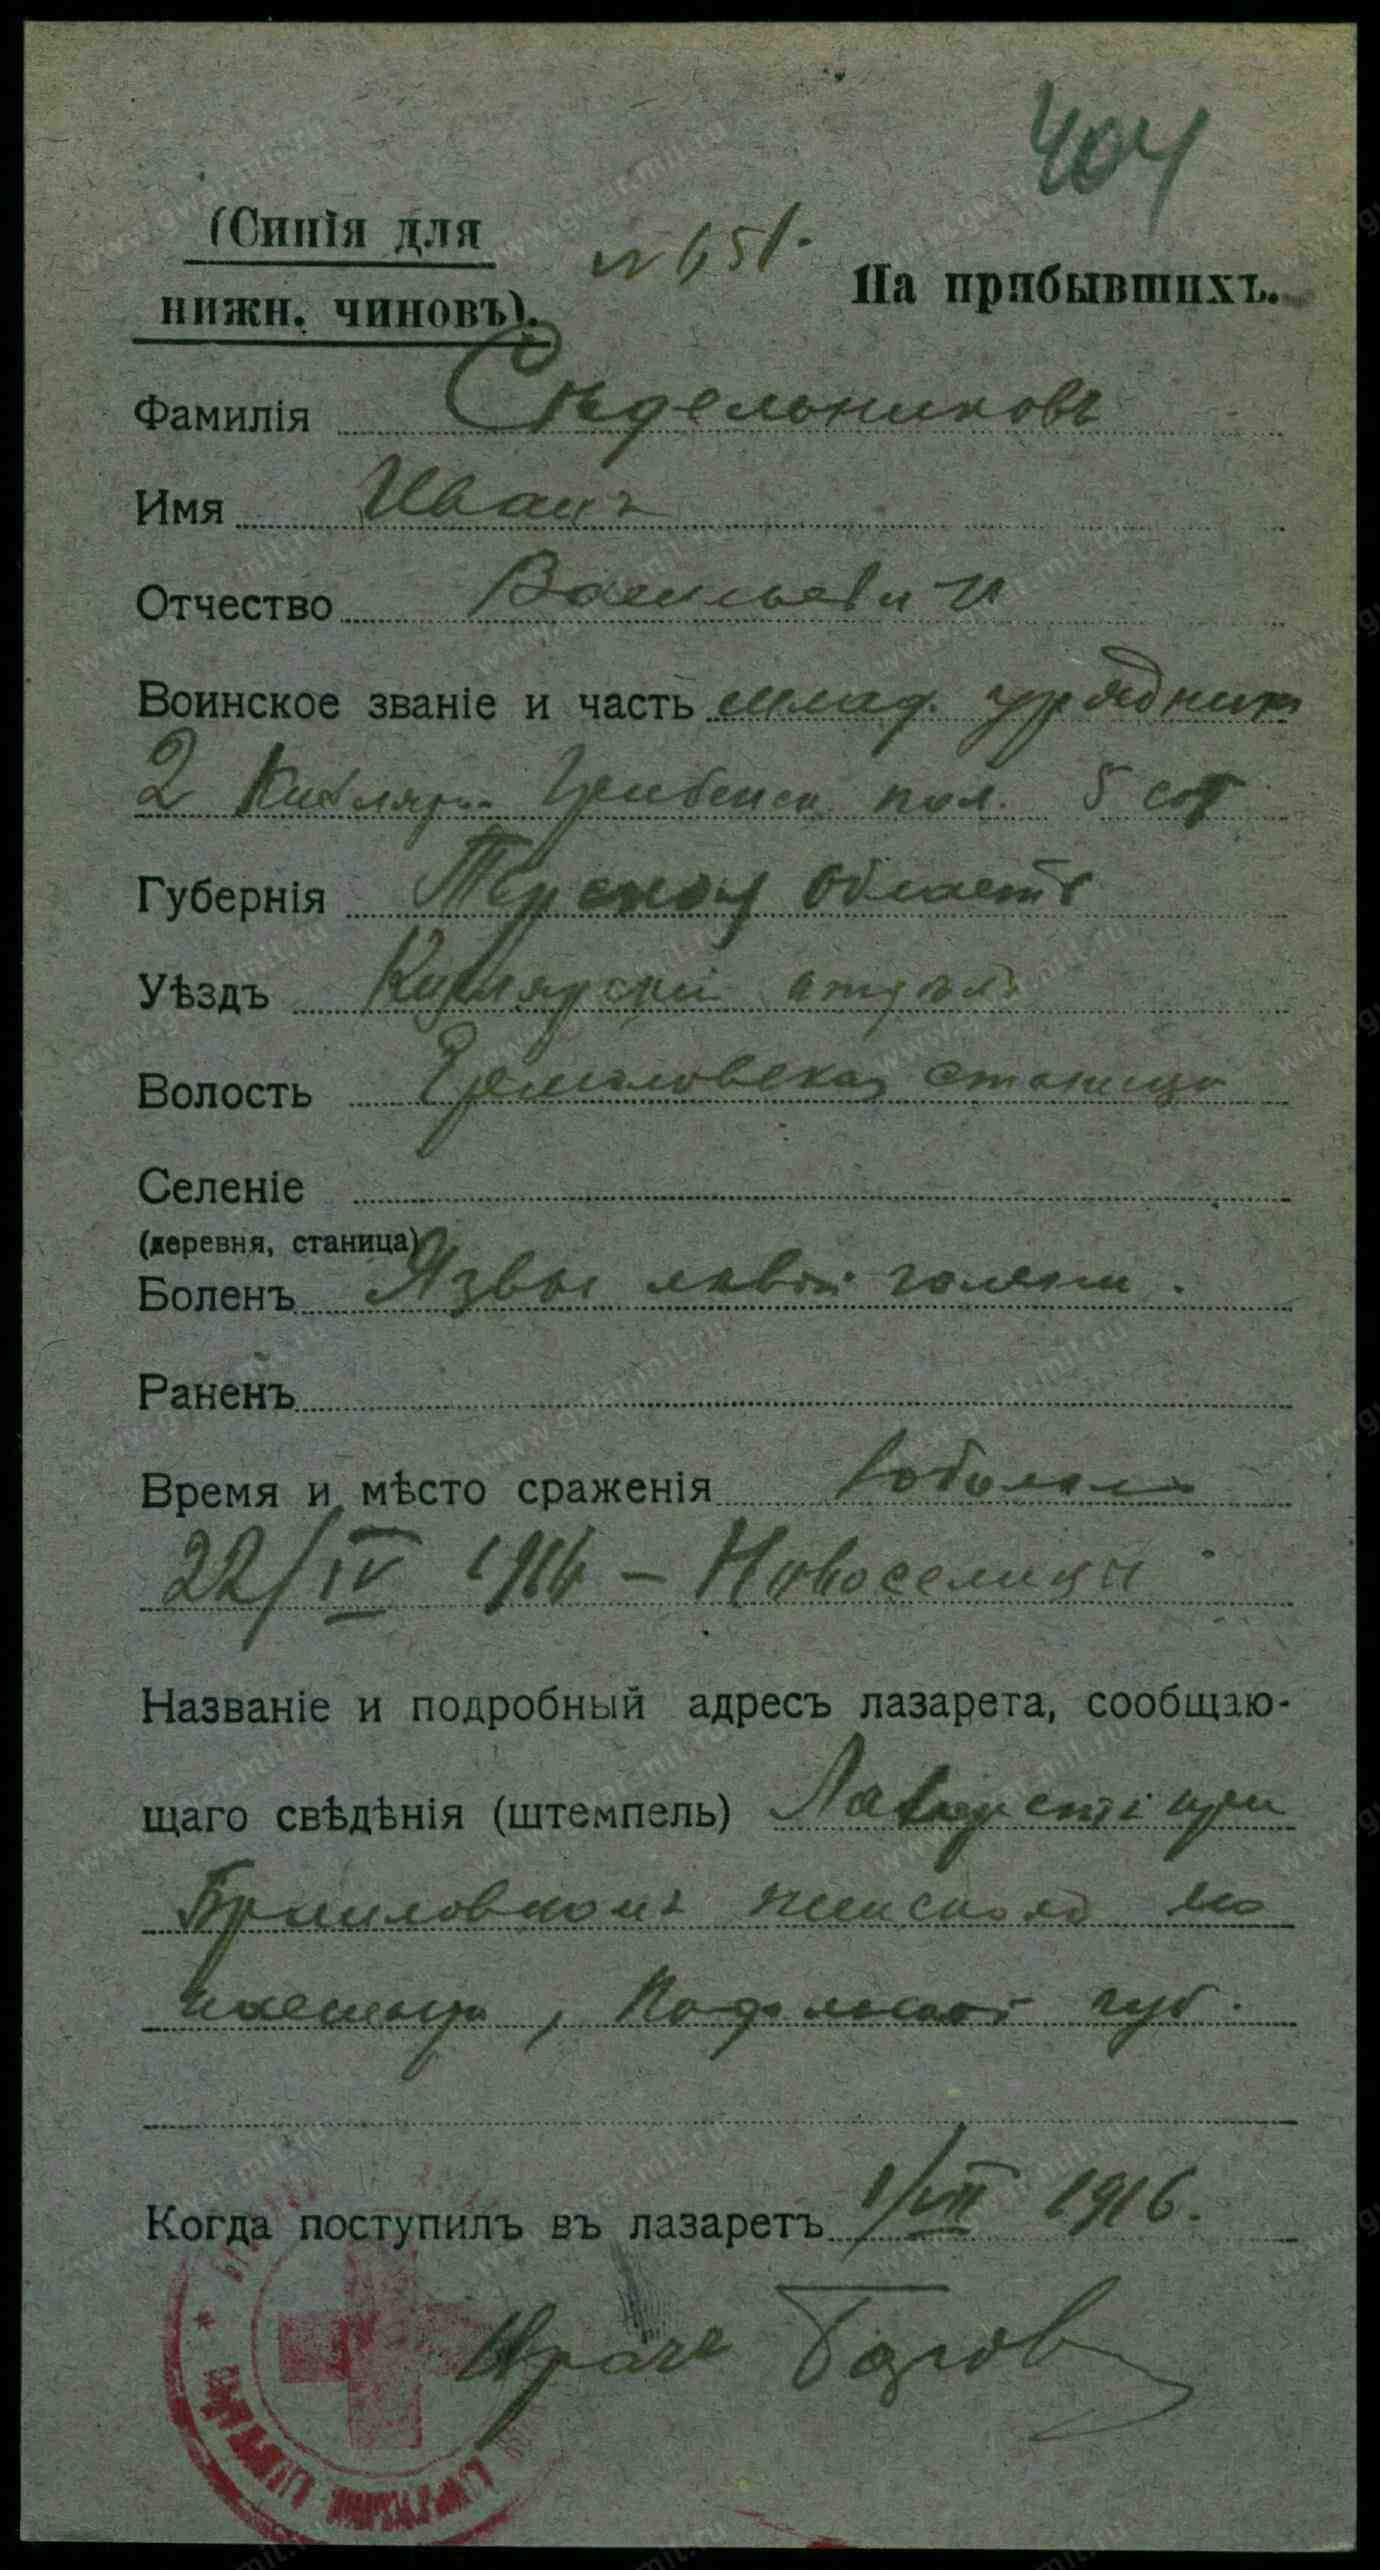 404
(Синія для
нижн. чиновъ).
№ 651.
На прибывшихъ.
Фамилія Сѣдельниковъ
Имя Иванъ
Отчество Васильевич
Воинское званіе и часть млад. урядник
2 Кизляр. Гребенск. пол. 5 сот
Губернія Терская область
Уѣздъ Кизлярскій отдѣлъ
Волость Ермоловская станица
Селеніе
(деревня, станица)
Боленъ Язвы лѣвой голени.
Раненъ
Время и мѣсто сраженія Заболѣлъ
22/IV 1916 – Новоселицы
Названіе и подробный адресъ лазарета, сообщаю-
щаго свѣдѣнія (штемпель) Лазаретъ при
Браиловскомъ женскомъ мо
настырѣ, Подольской губ.
Когда поступилъ въ лазаретъ 1/VII 1916.
Врачъ